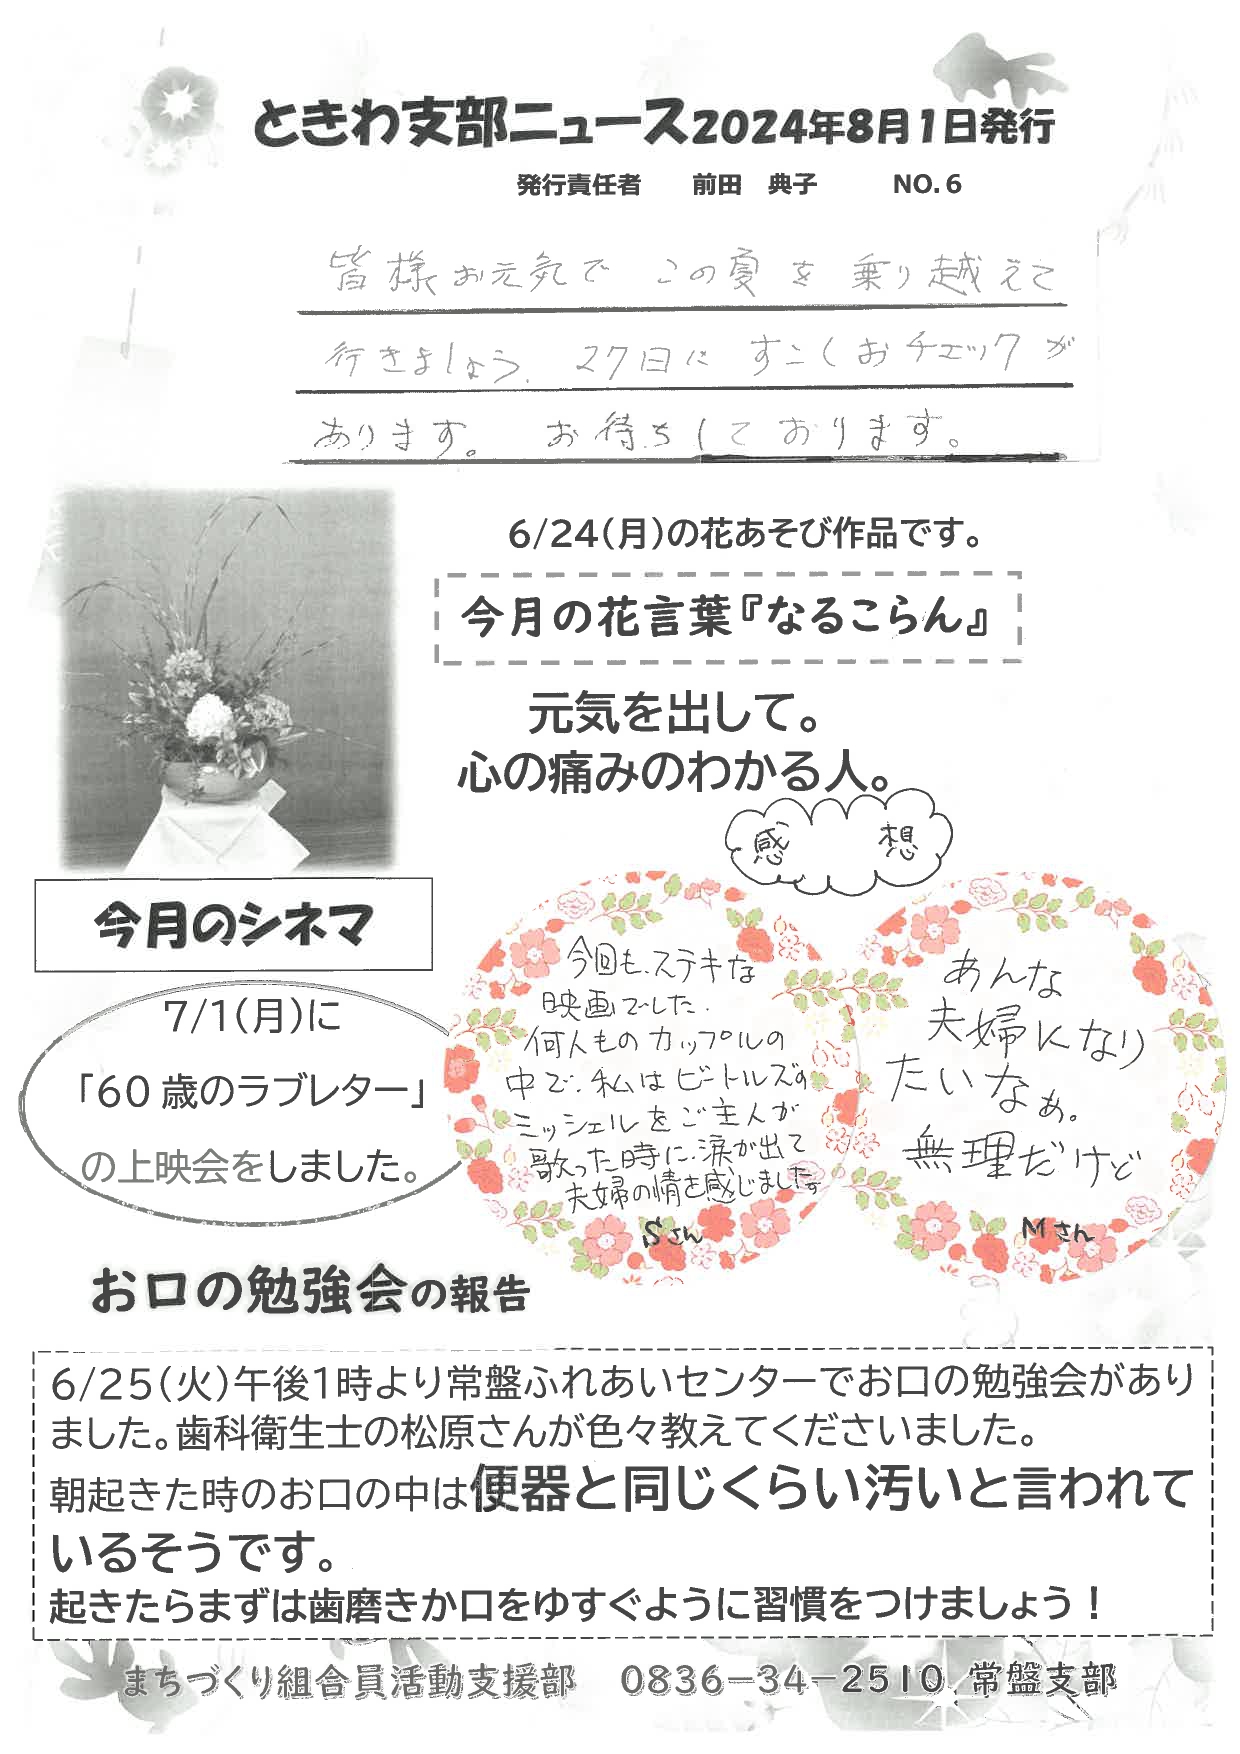 ときわ支部ニュース2024年8月1日発行
発行責任者　前田　典子　NO.6
皆様お元気で この夏を乗り越えて
行きましょう。27日に すこしおチェックが
あります。 お待ちしております。
6/24(月)の花あそび作品です。
今月の花言葉『なるこらん』
元気を出して。
心の痛みのわかる人。
感 想
今月のシネマ
7/1(月)に
「60歳のラブレター」
の上映会をしました。
今回も、ステキな
映画でした。
何人ものカップルの
中で、私はビートルズの
ミッシェルをご主人が
歌った時に、涙が出て
夫婦の情を感じました。
Sさん
あんな
夫婦になり
たいなぁ。
無理だけど
Mさん
お口の勉強会の報告
6/25(火)午後1時より常盤ふれあいセンターでお口の勉強会があり
ました。歯科衛生士の松原さんが色々教えてくださいました。
朝起きた時のお口の中は便器と同じくらい汚いと言われて
いるそうです。
起きたらまずは歯磨きか口をゆすぐように習慣をつけましょう！
まちづくり組合員活動支援部　0836－34－2510 常盤支部